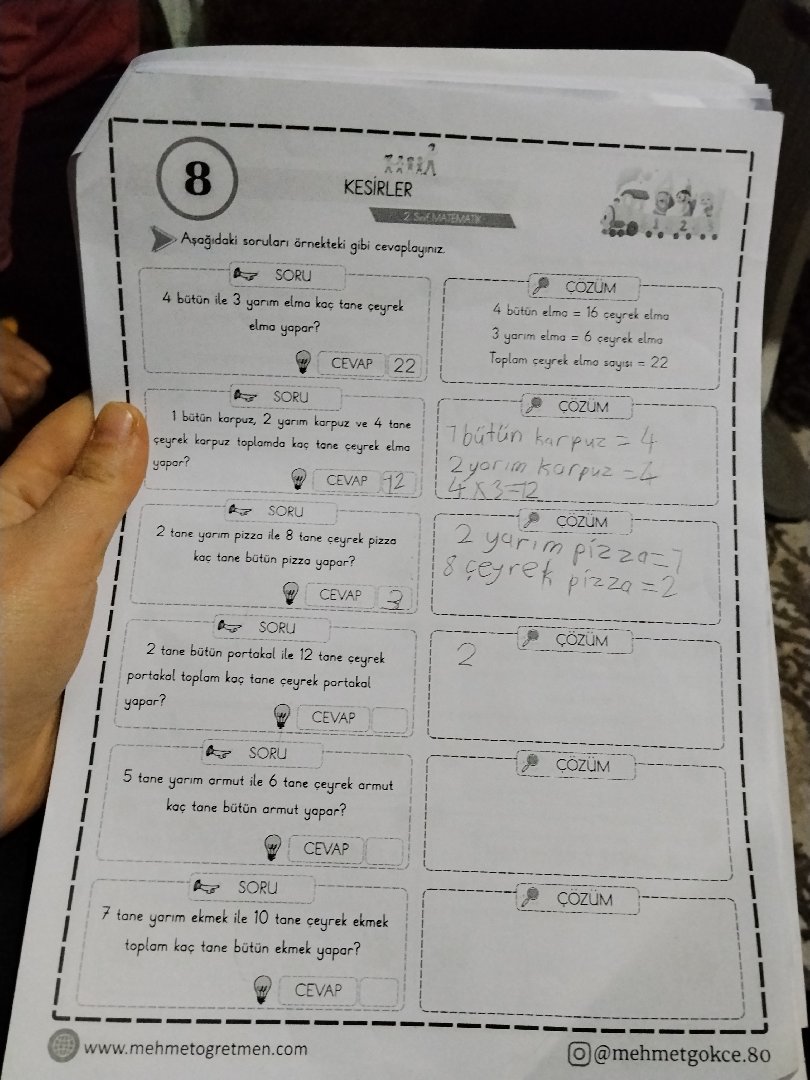 8
KESİRLER
2. Sınıf MATEMATİK
Aşağıdaki soruları örnekteki gibi cevaplayınız.
SORU
4 bütün ile 3 yarım elma kaç tane çeyrek
elma yapar?
CEVAP 22
ÇÖZÜM
4 bütün elma = 16 çeyrek elma
3 yarım elma = 6 çeyrek elma
Toplam çeyrek elma sayısı = 22
SORU
1 bütün karpuz, 2 yarım karpuz ve 4 tane
çeyrek karpuz toplamda kaç tane çeyrek elma
yapar?
CEVAP 12
ÇÖZÜM
1 bütün karpuz = 4
2 yarım karpuz = 4
4 x 3 = 12
SORU
2 tane yarım pizza ile 8 tane çeyrek pizza
kaç tane bütün pizza yapar?
CEVAP 3
ÇÖZÜM
2 yarım pizza = 1
8 çeyrek pizza = 2
SORU
2 tane bütün portakal ile 12 tane çeyrek
portakal toplam kaç tane çeyrek portakal
yapar?
CEVAP
ÇÖZÜM
2
SORU
5 tane yarım armut ile 6 tane çeyrek armut
kaç tane bütün armut yapar?
CEVAP
ÇÖZÜM
SORU
7 tane yarım ekmek ile 10 tane çeyrek ekmek
toplam kaç tane bütün ekmek yapar?
CEVAP
ÇÖZÜM
www.mehmetogretmen.com
@mehmetgokce.80